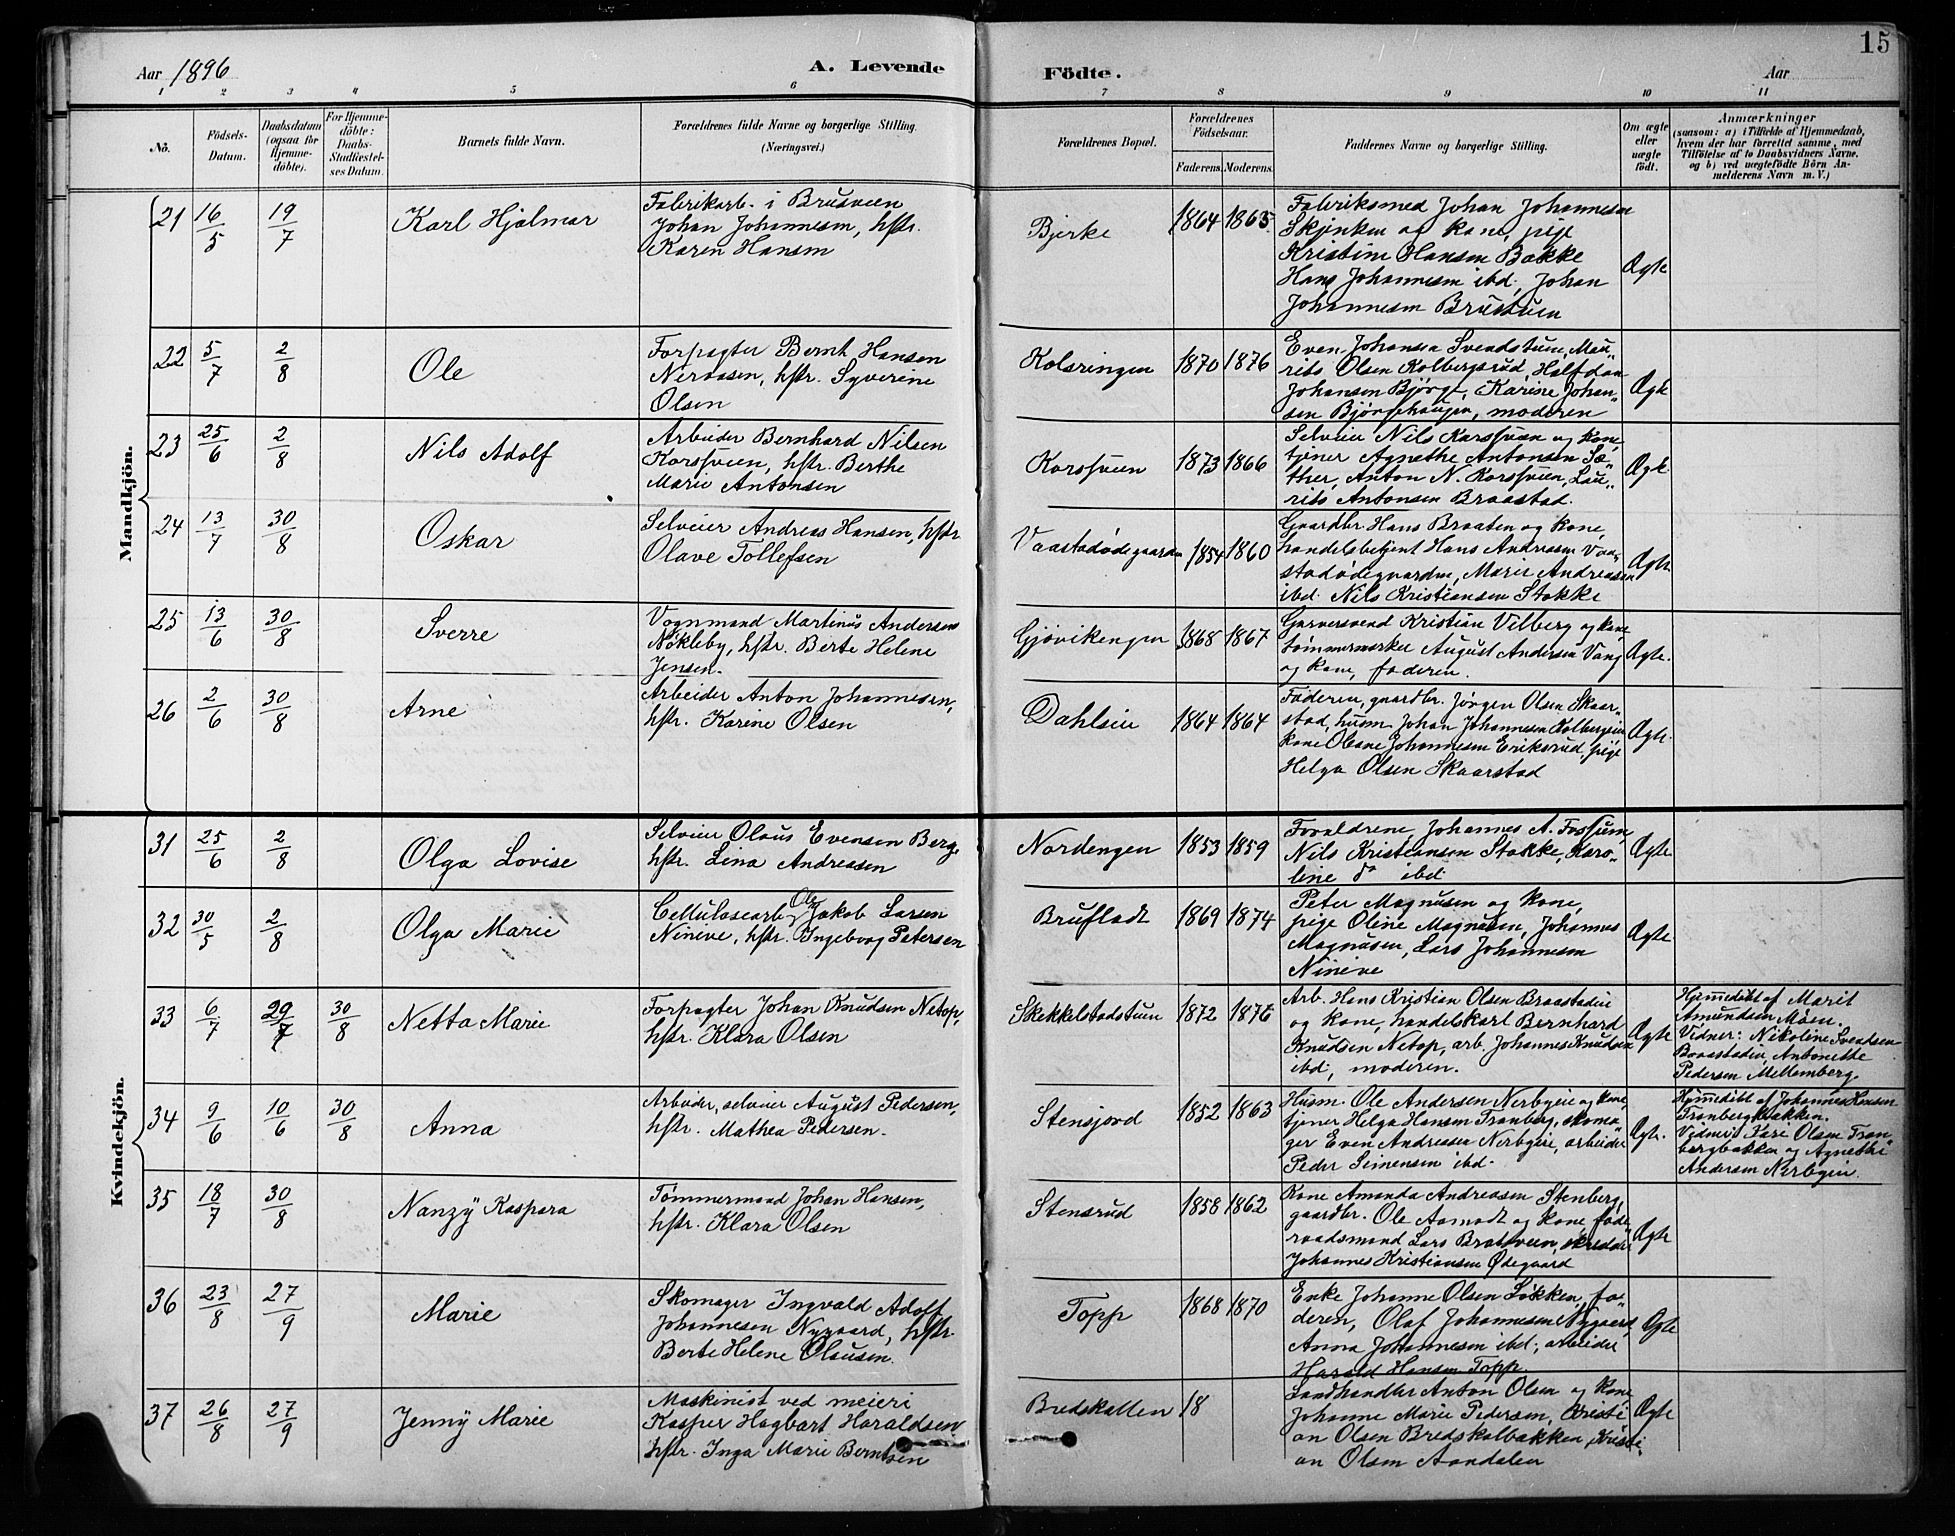 15
Aar 1896
A. Levende
Födte.
Aar
1 2 3 4 5 6 7 8 9 10 11
No.
Födsels-
Datum.
Daabsdatum
(ogsaa for
Hjemme-
döbte).
For Hjemme-
döbte:
Daabs-
Stadfæstel-
ses Datum.
Barnets fulde Navn.
Forældrenes fulde Navne og borgerlige Stilling.
(Næringsvei.)
Forældrenes Bopæl.
Forældrenes
Födselsaar.
Faderens. Moderens.
Faddernes Navne og borgerlige Stilling.
Om ægte
eller
uægte
födt.
Anmærkninger
(saasom: a) i Tilfælde af Hjemmedaab,
hvem der har forrettet samme, med
Tilföielse af to Daabsvidners Navne.
og b) ved uægtefödte Börn An-
melderens Navn m. V.)
Mandkjön.
21 16/5 19/7
Karl Hjalmar
Fabrikarb. i Brusveen
Johan Johannesen, hstr.
Karen Hansen
Bjerke
1864 1863.
Fabriksmed Johan Johannesen
og kone, pige
Kristine Hansen Bakke
Hans Johannesen ibd., Johan
Johannesen
Ægte
22 5/7 2/8
Ole
Forpagter Bernt Hansen
Neraasen, hstr. Syverine
Olsen
Kolsringen
1870 1876
Even Johansen Svendstuen, Mau„
rits Olsen Kolbergsrud, Halfdan
Johansen Bjørge, Karine Johan„
sen Bjørgehaugen, moderen
Ægte
23 25/6 2/8
Nils Adolf
Arbeider Bernhard Nilsen
Korsveen, hstr. Berthe
Marie Antonsen
Korsveen
1873 1866
Selveier Nils Korsveen og kone,
tjener Agnethe Antonsen Sæ„
ther, Anton N. Korsveen, Lau„
rits Antonsen Braastad.
Ægte
24 13/7 30/8
Oskar
Selveier Andreas Hansen, hstr.
Olave Tollefsen
Vaastadødegaarden
1854 1860
Gaardbr. Hans Braaten og kone,
handelsbetjent Hans Andreasen Vaa„
stadødegaarden, Marie Andreasen
ibd. Nils Kristiansen Stokke
Ægte
25 13/6 30/8
Sverre
Vognmand Martinus Andersen
Nøkleby, hstr. Berte Helene
Jensen.
Gjøvikengen
1868 1867
Garversvend Kristian Velberg og kone
tømmermerker August Andersen Vang
og kone, faderen.
Ægte.
26 2/6 30/8
Arne
Arbeider Anton Johannesen,
hstr. Karene Olsen
Dahlseie
1864 1864
Faderen, gaardbr. Jørgen Olsen Skaar„
stad, husm. Johan Johannesen
kone Oleane Johannesen Eriksrud, pige
Helga Olsen Skaarstad
Ægte.
Kvindekjön.
31 25/6 2/8
Olga Lovise
Selveier Olaus Evensen Berg,
hstr. Lina Andreasen
Nordengen
1853 1859
Forældrene, Johannes A. Fossum,
Nils Kristiansen Stokke, Karo„
line do ibd.
Ægte
32 30/5 2/8
Olga Marie
Cellulosearb. Ole Jakob Larsen
Nineve, hstr. Ingeborg Petersen
Brufladt
1869 1874
Peter Magnusen og kone,
pige Oline Magnusen, Johannes
Magnusen, Lars Johannesen
Nineve
Ægte
33 6/7 29/7 30/8
Netta Marie
Forpagter Johan Knudsen Netop,
hstr. Klara Olsen
Skekkelstadstuen
1872 1876
Arb. Hans Kristian Olsen Braastadeie
og kone, handelskarl Bernhard
Knudsen Netop, arb. Johannes Knudsen
ibd., moderen.
Ægte
Hjemmedøbt af Marit
Amundsen Moen.
Vidner: Nikoline Svendsen
Braastadeie, Antonette
Pedersen Mellemberg.
34 9/6 10/6 30/8
Anna
Arbeider, selveier August Pedersen,
hstr. Mathea Pedersen.
Stensjord
1852 1863
Husm. Ole Andersen Nerbyeie og kone,
tjener Helga Hansen Tranberg, skoma„
ger Even Andresen Nerbyeie, arbeider
Peder Simensen ibd.
Ægte.
Hjemmedøbt af Johannes Hansen
Tranbergbakken.
Vidner: Kari Olsen Tran„
bergbakken og Agnethe
Andersen Nerbyeie.
35 18/7 30/8
Nanzÿ Kaspara
Tømmermand Johan Hansen,
hstr. Klara Olsen
Stensrud
1858 1862
Kone Amanda Andreasen Stenberg,
gaardbr. Ole Aamodt og kone, føde„
raadsmand Lars Bratveen, skrædder
Johannes Kristiansen Ødegaard
Ægte
36 23/8 27/9
Marie
Skomager Ingvald Adolf
Johannesen Nygaard, hstr.
Berte Helene Olausen.
Topp
1868 1870
Enke Johanne Olsen Løkken, fa„
deren, Olaf Johannesen Nygaard,
Anna Johannesen ibd., arbeider
Harald Hansen Topp.
Ægte
37 26/8 27/9
Jennÿ Marie
Maskinist ved meieri
Kasper Hagbart Haraldsen
hstr. Inga Marie Berntsen
Bredskallen
18
Landhandler Anton Olsen og kone
Johanne Marie Pedersen, Kristi„
an Olsen Bredskalbakken, Kristi„
an Olsen Aandalen
Ægte